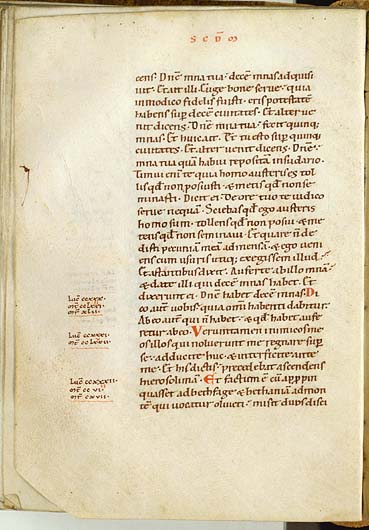 SCDO
cens. Dne mna tua. decē mnas adquisi
uit. Et ait illi. Euge bone serue. quia
in modico fidelis fuisti. eris potestatē
habens sup decē ciuitates. Et alter ve
nit dicens. Dne mna tua. fecit quinq;
mnas. Et huic ait. Et tu esto sup quinq;
ciuitates. Et alter uenit dicens. Dne.
mna tua quā habui repositā in sudario.
Timui enī te quia homo austeris es. tol
lis qd non posuisti. & metis qd non se
minasti. Dicit ei. De ore tuo te iudico
serue nequā. Sciebas qd ego austeris
homo sum. tollens qd non posui. & me
tens qd non seminaui. Et quare n̄ de
disti pecuniā meā ad mensā. & ego ueni
ens cum usuris utiq; exegissem illud.
Et astantibus dixit. Auferte ab illo mnā
& date illi qui decē mnas habet. Et
dixerunt ei. Dne habet decē mnas. Di
co aut uobis quia omī habenti dabitur.
Ab eo aut qui n̄ habet. & qd habet aufe
retur ab eo. Verumtamen inimicos me
os illos qui noluerunt me regnare sup
se. adducite huc. & interficite ante
me. Et his dictis. precedebat ascendens
hierosolimā. Et factum ē cū app̄pin
quasset ad bethfage & bethaniā ad mon
tē qui uocatur oliueti. misit duos disci
luc̄ ccxxx.
mt̄ cclxxi.
mr̄ xlii.
luc̄ ccxxxi.
mt̄ cclxxii.
luc̄ ccxxxii.
mt̄ cc vi.
mr̄ cxvii.